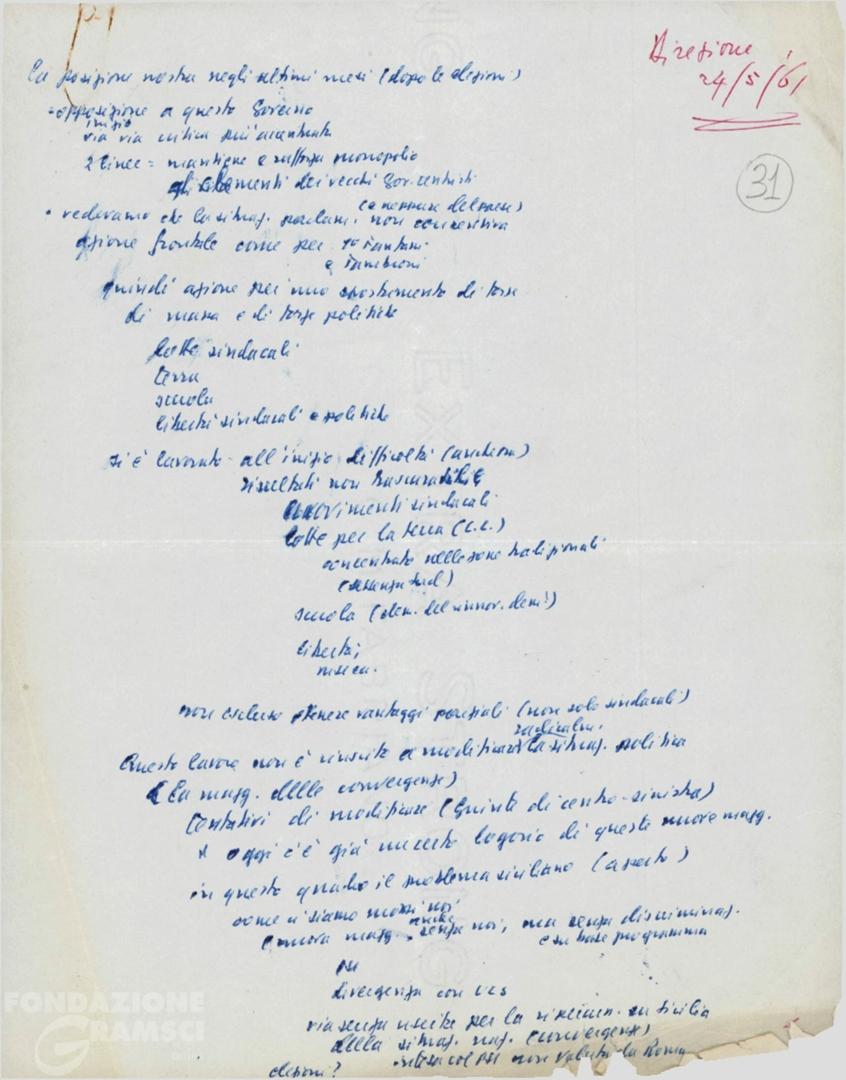 Direzione
24/5/61
31
La posizione nostra negli ultimi mesi (dopo le elezioni)
- opposizione a questo Governo
inizio
via via critica più accentuata
2 linee = mantiene e rafforza monopolio
gli elementi dei vecchi gov. centristi
(e nemmeno del paese)
• vedevamo che la situaz. parlam. non consentiva
azione frontale come per 1º Fanfani
e Tambroni
quindi azione per uno spostamento di forze
di massa e di forze politiche
lotte sindacali
terra
scuola
libertà sindacali e politiche
si è lavorato - all'inizio difficoltà
risultati non trascurabili
movimenti sindacali
lotte per la terra (C.C.)
concentrato nelle zone tradizionali
(assenza sud)
scuola (elem. del rinnov. dem!)
libertà;
non escluso ottenere vantaggi parziali (non solo sindacali)
radicalm.
Questo lavoro non è riuscito a modificare la situaz. politica
(La magg. delle convergenze)
Tentativi di modificare (giunte di centro-sinistra)
oggi c'è già un certo logorio di questa nuova magg.
in questo quadro il problema siciliano (aperto)
come ci siamo mossi noi
anche
nuova magg. senza noi, ma senza discriminaz.
e su base programma
PSI
divergenza con UCS
via senza uscita per la Sicilia
della situaz. naz. (convergenze)
intesa col PSI non voluta da Roma
elezioni?
FONDAZIONE
GRAMSCI